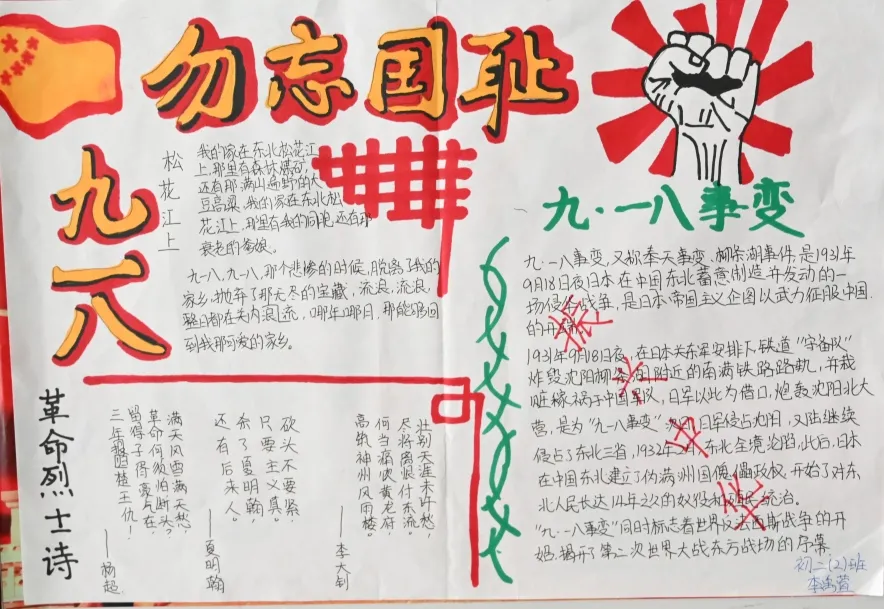 勿忘国耻
九一八
松花江上
我的家在东北松花江
上,那里有森林煤矿,
还有那满山遍野的大
豆高粱,我的家在东北松
花江上,那里有我的同胞,还有那
衰老的爹娘。
九一八,九一八,那个悲惨的时候,脱离了我的
家乡,抛弃了那无尽的宝藏,流浪,流浪,
整日都在关内流浪,哪年哪月,那能够回
到我那可爱的家乡。
九·一八事变
九·一八事变,又称奉天事变、柳条湖事件,是1931年
9月18日夜日本在中国东北蓄意制造并发动的一
场侵华战争,是日本帝国主义企图以武力征服中国
的开端。
1931年9月18日夜,在日本关东军安排下,铁道"守备队"
炸毁沈阳柳条湖附近的南满铁路路轨,并栽
赃嫁祸于中国军队,日军以此为借口,炮轰沈阳北大
营,是为"九一八事变"次日,日军侵占沈阳,又陆续
侵占了东北三省,1932年2月,东北全境沦陷,此后,日本
在中国东北建立了伪满州国傀儡政权,开始了对东
北人民长达14年之久的奴役和殖民统治。
"九·一八事变"同时标志着世界反法西斯战争的开
始,揭开了第二次世界大战东方战场的序幕
振兴中华
革命烈士诗
满天风雪满天愁,
革命何须怕断头?
留得子胥豪气在,
三年报楚王仇!
——杨超
砍头不要紧,
只要主义真。
杀了夏明翰,
还有后来人。
——夏明翰
壮别天涯未许愁,
尽将离恨付东流。
何当痛饮黄龙府,
高筑神州风雨楼。
——李大钊
初二(2)班